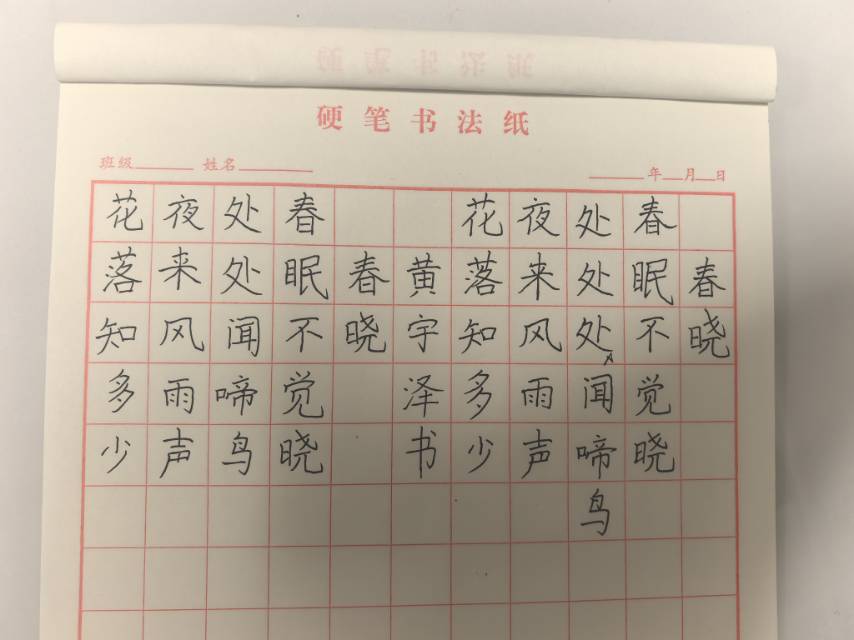 硬笔书法纸
班级____ 姓名____ ____年__月__日
春晓
春眠不觉晓
处处处闻啼鸟
夜来风雨声
花落知多少
黄宇泽书
春晓
春眠不觉晓
处处闻啼鸟
夜来风雨声
花落知多少